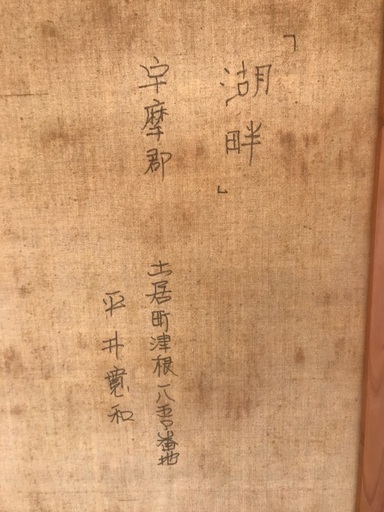 「湖畔」
宇摩郡
土居町津根一八五〇番地
平井寛和